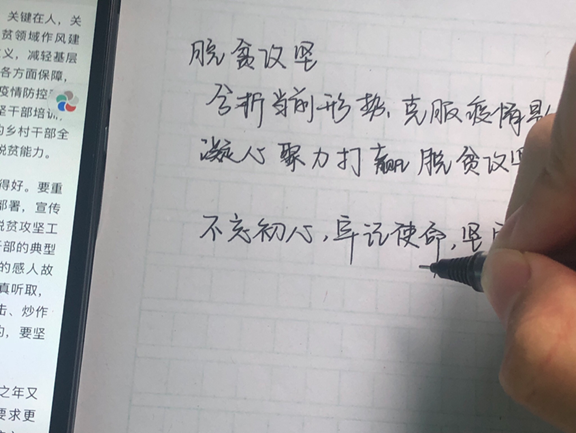 关键在人，关
贫领域作风建
义，减轻基层
各方面保障，
疫情防控
坚干部培训，
的乡村干部全
脱贫能力。
得好。要重
部署，宣传
脱贫攻坚工
干部的典型
的感人故
真听取，
击、炒作
的，要坚
之年又
要求更
脱贫攻坚
分析当前形势、克服疫情影
凝心聚力打赢脱贫攻坚
不忘初心，牢记使命，坚